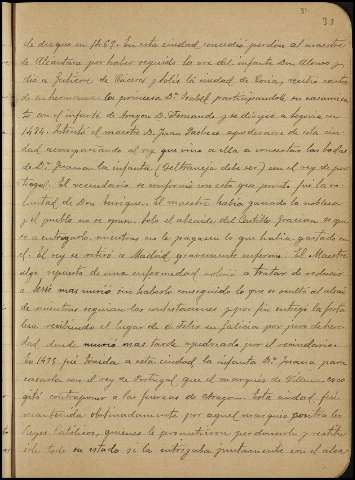 33
de duque en 1469. En esta ciudad concedió perdón al maestre
de Alcántara por haber seguido la voz del infante Don Alonso y
dió a Gutierre de Cáceres y Solís la ciudad de Coria, recibió cartas
de su hermana la princesa Dª Isabel participandole su casamien
to con el infante de Aragon D. Fernando y se dirigió a Segovia en
1474. Intentó el maestre D. Juan Pacheco apoderarse de esta ciu
dad acompañando al rey que vino a ella a concertar las bodas
de Dª Juana la infanta (Beltraneja debe ser) con el rey de Por
tugal. El vecindario se conformó con esta que pronto fué la vo
luntad de Don Enrique. El maestre había ganado la nobleza
y el pueblo no se opuso. Solo el alcaide del Castillo Gracian se que
a entregarlo mientras no le pagasen lo que había gastado en
él. El rey se retiró a Madrid gravemente enfermo. El Maestre
algo repuesto de una enfermedad volvió a tratar de reducir
a sesé mas murió sin haberlo conseguido lo que se ocultó al alcai
de mientras seguían las contestaciones y por fin entregó la forta
leza recibiendo el lugar de S. Felix en Galicia por juro de here
dad donde murió mas tarde apedreado por el vecindario.
En 1475 fué traida a esta ciudad la infanta Dª Juana para
casarla con el rey de Portugal, que el marqués de Villena esco
gitó contraponer a las fuerzas de Aragon. Esta ciudad fué
mantenida obstinadamente por aquel marqués contra los
Reyes Católicos, quienes le prometieron perdonarle y restitu
irle todo su estado si la entregaba juntamente con el alca